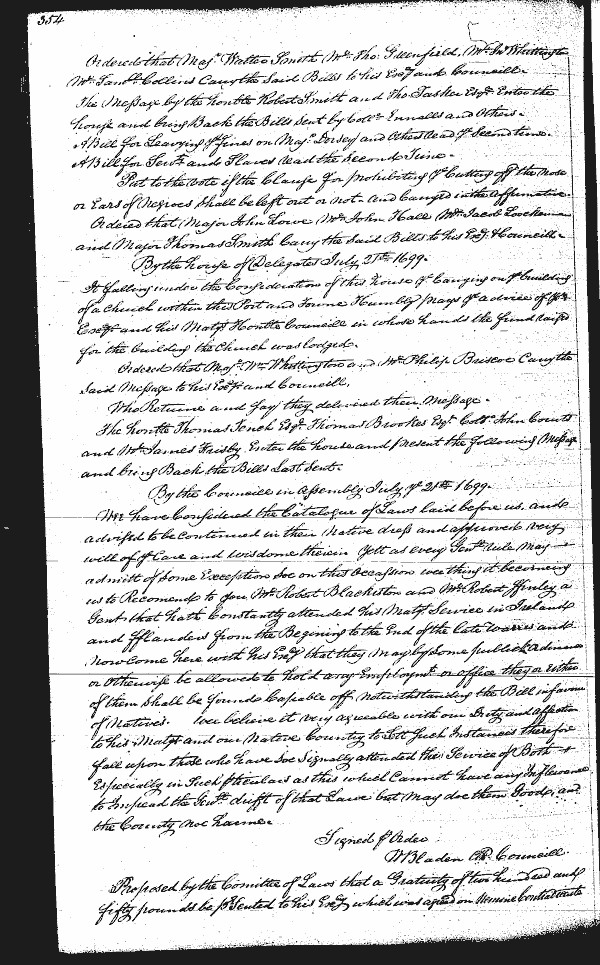 354
Ordered that Majr. Walter Smith Mr. Tho: Greenfield, Mr. Jno Whittington
Mr. Saml. Collins Carry the Said Bills to his Excy and Councill.
The Message by the honble Robert Smith and Tho: Tasker Esqr. Enter the
house and bring Back the Bills Sent by Coll. Ennalls and Others.
A Bill for Leavying ye Fines on Majr. Dorsey and others read ye Second time.
A Bill for Servts. and Slaves read the Second Time.
Put to the Vote if the Clause for prohibiting ye Cutting off the Nose
or Ears of Negroes Shall be left out or not. And Carryed in the affirmative.
Ordered that Major John Lowe Mr. John Hall Mr. Jacob Lockerman
and Major Thomas Smith Carry the Said Bills to his Excy. & Councill.
By the house of Delegates July 21th 1699.
It falling under the Consideration of this house ye Carrying on ye building
of a Church within this Port and Towne Humbly prays ye advice of yor
Excy and his Matys Honble Councill in whose hands the fund raised
for the building the Church was lodged.
Ordered that Majr. Wm. Whittington and Mr. Philip Briscoe Carry the
Said Message to his Excy and Councill.
Who Returne and Say they delivered their Message.
The honble Thomas Tench Esqr. Thomas Brooke Esqr. Coll. John Courts
and Mr. James Frisby Enter the house and present the following Message
and bring Back the Bills Last Sent.
By the Councill in Assembly July ye 21th 1699.
We have Considered the Catalogue of Laws laid before us, and
advised to be Continued in their Native dress and approved very
well of ye Care and wisdome therein Yett as every Genll. rule may
admitt of Some Exception Soe on this Occassion wee thing it becoming
us to Recomend to you Mr. Robert Blackiston and Mr. Robert Ffinley a
Gent that hath Constantly attended his Matys Service in Ireland
and Fflanders from the Begining to the End of the late Warrs and
now Come here with his Excy that they May by Some publick Ordinance
or Otherwise be allowed to hold any Employmt. or office they or either
of them Shall be found Capable off notwithstanding the Bill in favour
of Natives. Wee believe it very agreeable with our Duty and affection
to his Matys and our Native Country to Lett Such Instances therefore
fall upon those who have Soe Signally attended the Service of Both &
Especially in Such pticulars as this which Cannot have any Influence
to Impead the Genll. drifft of that Lawe but May doe them Good, and
the County noe harme.
Signed p Order
W Bladen Cl. Councill.
Proposed by the Comittee of Laws that a Gratuity of two hundred and
fifty pounds be presented to his Excy which was agreed on Nemine Contradicente